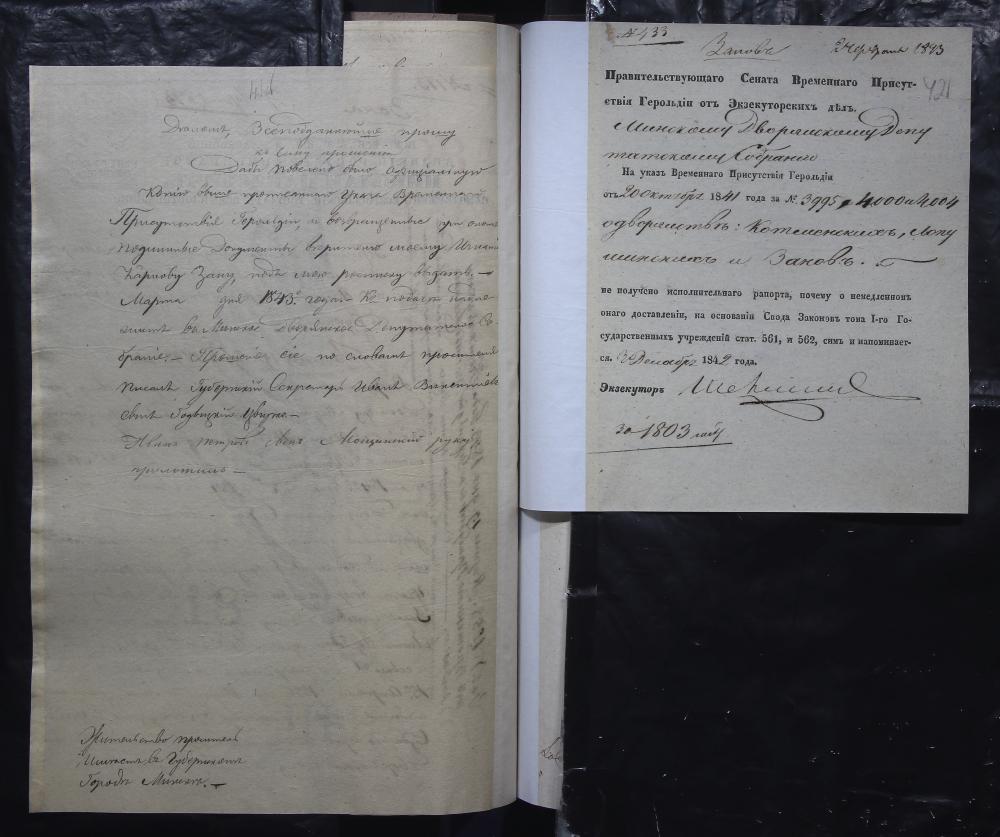 Всеподданнейше прошу
къ сему прошенію
Дабы повелено было официальную
Копію выше прописаннаго Указа Временнаго
Присутствія Герольдіи, и возвращенные при ономъ
подлинные Документы верителю моему
Карпову Зану, подъ мою росписку выдать.—
Марта дня 1843 года.— Къ подачѣ надле-
житъ въ Минское Дворянское Депутатское Со-
браніе.— Прошеніе сіе по словамъ просителя
писалъ Губернскій Секретарь Иванъ Викентіевъ
сынъ
Иванъ Петровъ сынъ руку
приложилъ—
Жительство проситель
имѣетъ въ Губернскомъ
Городѣ Минскѣ.—
№ 433
Зановъ 1843
421
Правительствующаго Сената Временнаго Присут-
ствія Герольдіи отъ Экзекуторскихъ дѣлъ.
Минскому Дворянскому Депу
татскому Собранію
На указъ Временнаго Присутствія Герольдіи
отъ 20 октября 1841 года за № 3995, 4,000 и 4,004
о дворянствѣ: Котлинскихъ, Лопу
шинскихъ и Зановъ.
не получено исполнительнаго рапорта, почему о немедленномъ
онаго доставленіи, на основаніи Свода Законовъ тома I-го Го-
сударственныхъ учрежденій стат. 561, и 562, симъ и напоминает-
ся. Декабря 1842 года.
Экзекуторъ
за 1803 годъ